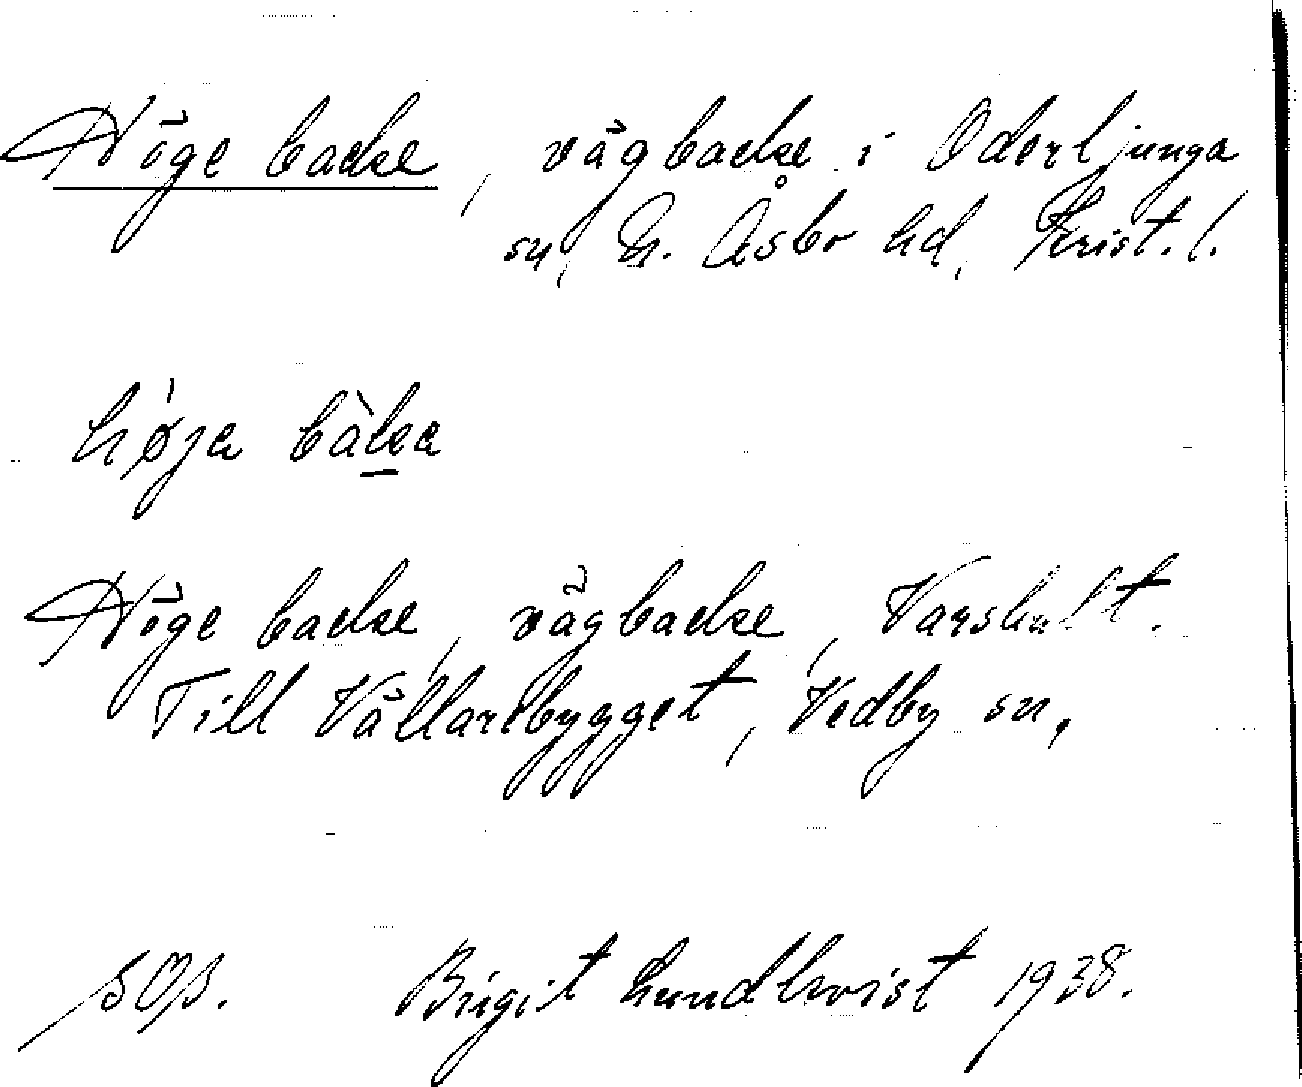 Höge backe, vägbacke i Oderljunga
sn, N. Åsbo hd, Krist. l.
høja bàka
Höge backe, vägbacke, Varshult.
Till Vållarebygget, Vedby sn,
SOS. Birgit Lundkvist 1938.